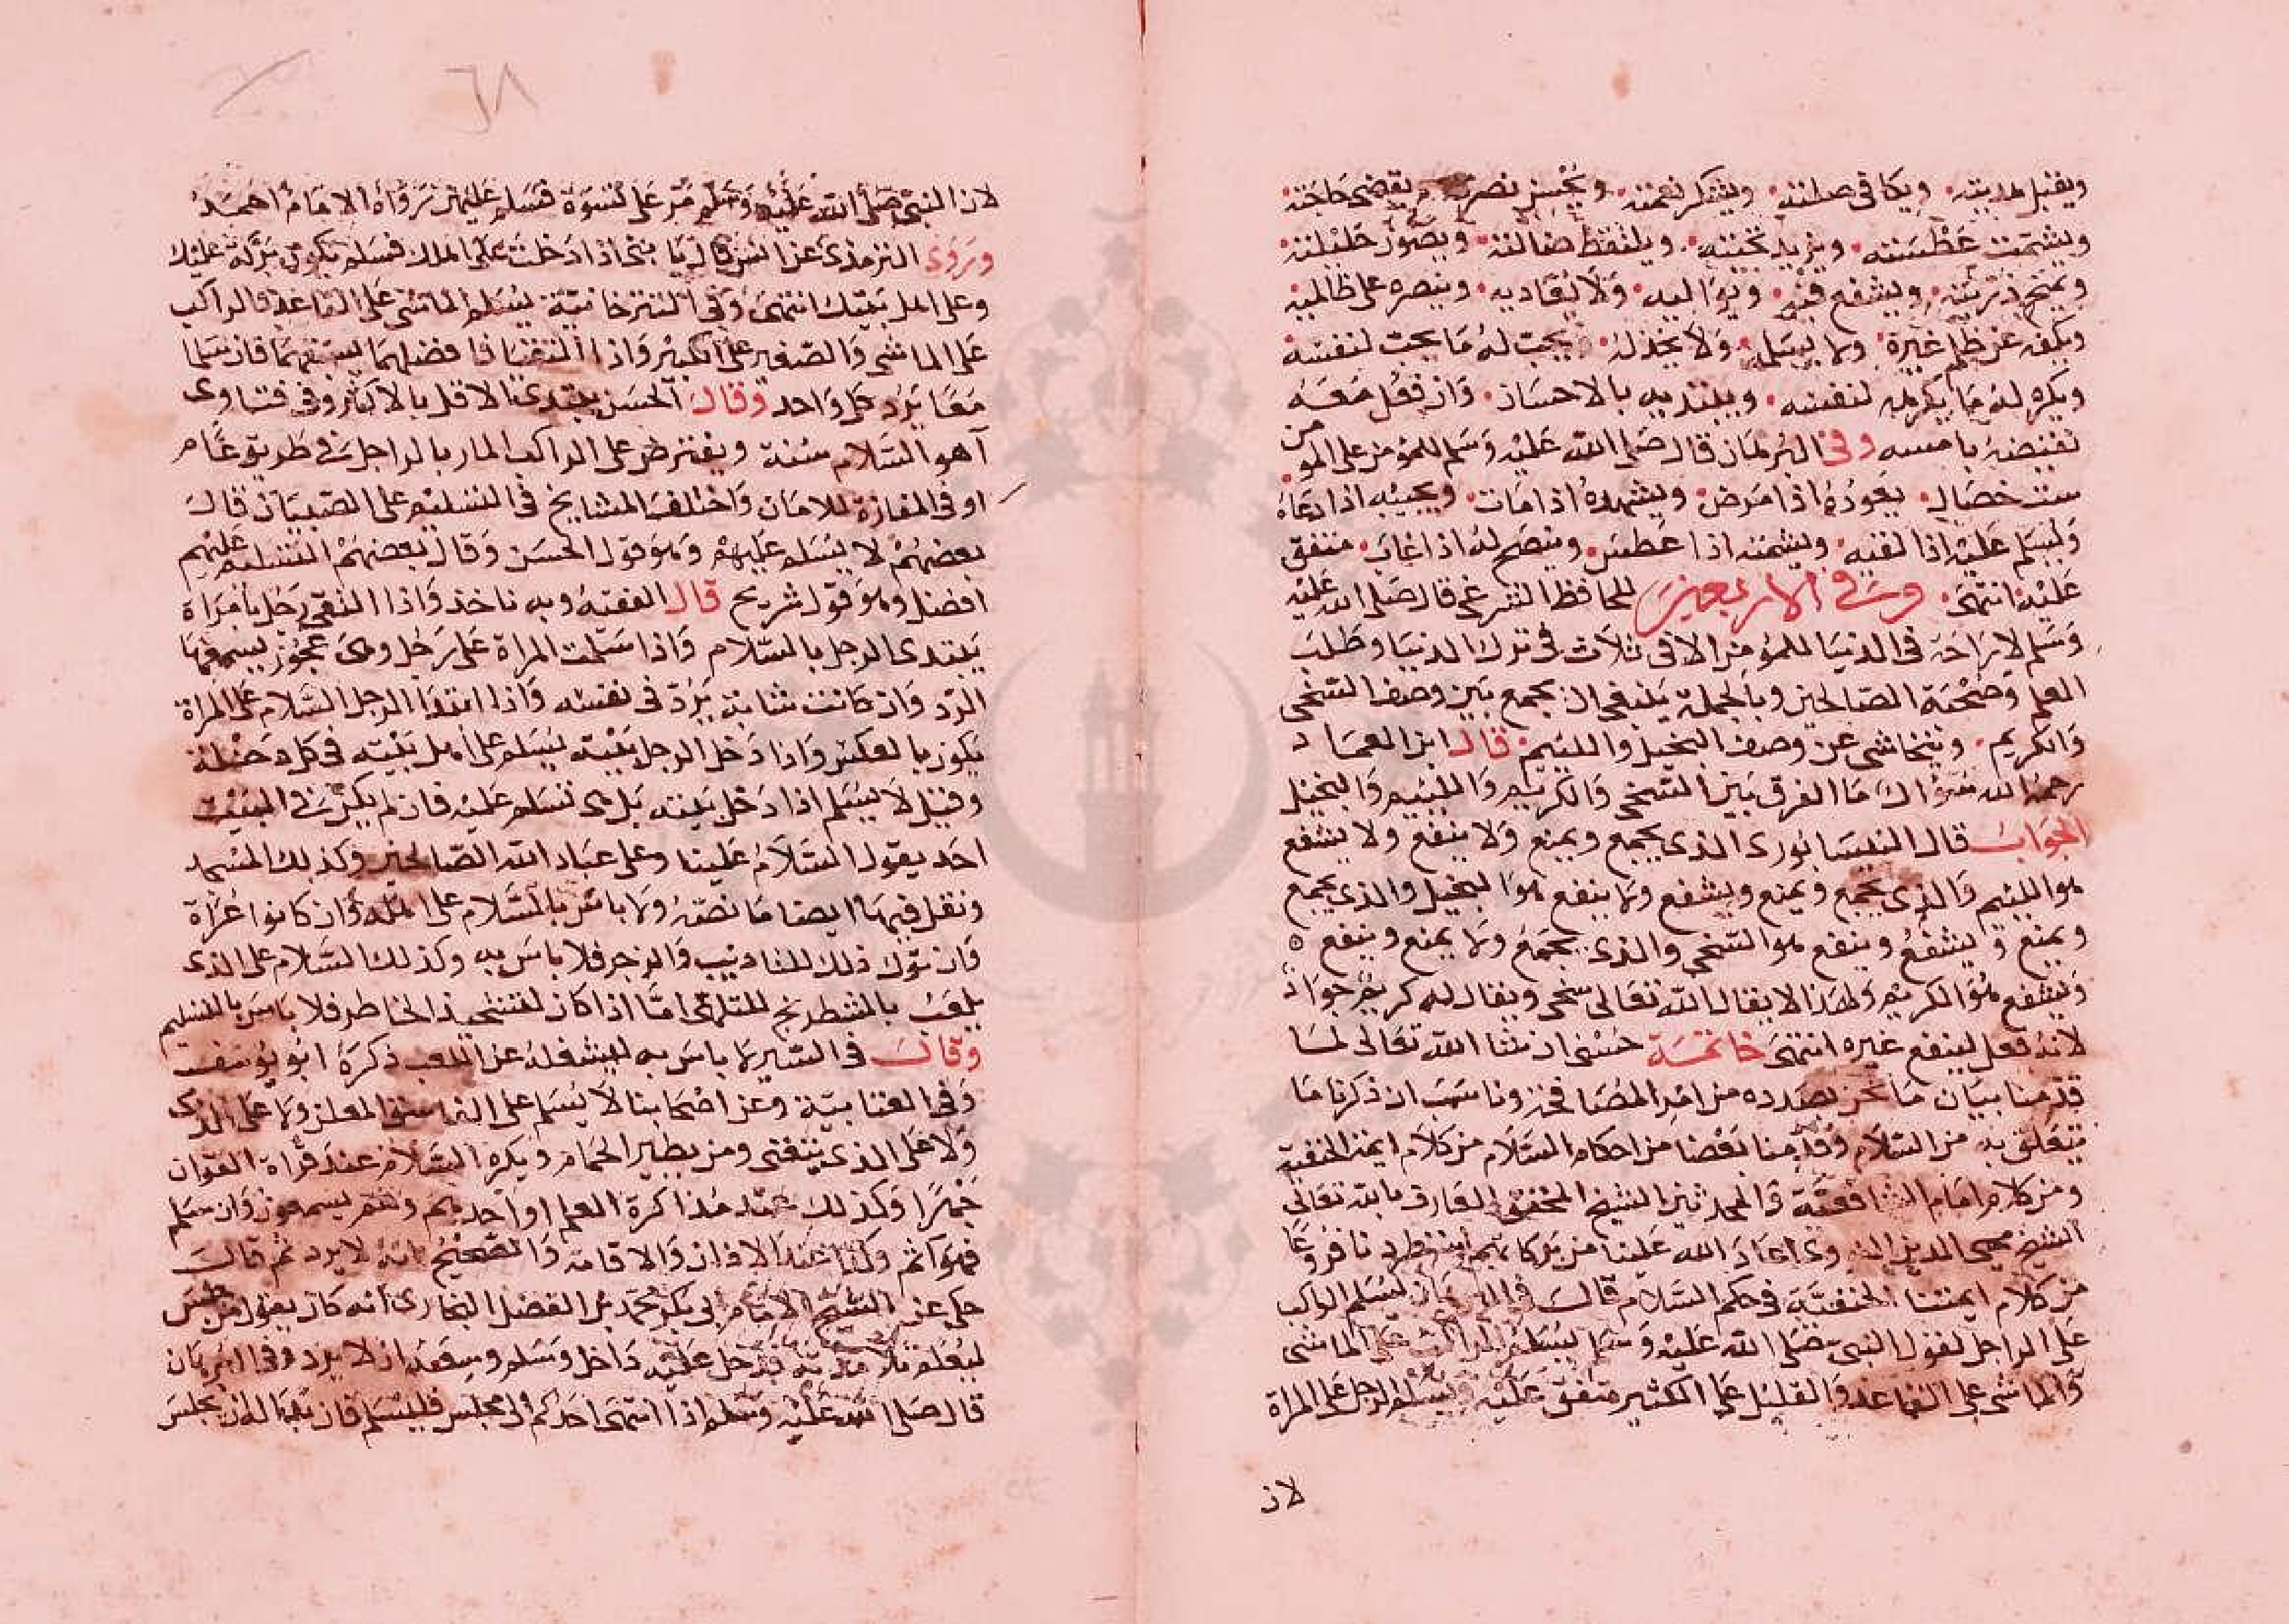 ويقبل هديته ويكافى صلته ويشكر نعمته ويحسن نصرته ويقضى حاجته
ويشمت عطسته ويريد تحيته ويلتقط ضالته ويصون حليلته
ويمنح ذريته ويشفع فيه ويواليه ولا يعاديه وينصره على ظالميه
ويكفه عن ظلم غيره ولا يسلمه ولا يخذله ويحب له ما يحب لنفسه
ويكره له ما يكره لنفسه ويبتديه بالاحسان وان فعل معه
نقيضه بامسه وفى البرهان قال صلى الله عليه وسلم للمؤمن على المومن
ست خصال يعوده اذا مرض ويشهده اذا مات ويجيبه اذا دعاه
وليسلم عليه اذا لقيه ويشمته اذا عطس وينصح له اذا غاب متفق
عليه انتهى وفى الاربعين للحافظ قال صلى الله عليه
وسلم لا راحة فى الدنيا للمؤمن الا فى ثلاث فى ترك الدنيا وطلب
العلم وصحبة الصالحين وبالجملة ينبغى ان يجمع بين وصف السخى
والكريم ويتحاشى عن وصف البخيل واللئيم قال ابن العماد
رحمه الله سؤال ما الفرق بين السخى والكريم واللئيم والبخيل
الجواب قال النيسابورى الذى يجمع ويمنع ولا ينفع ولا يشفع
هو اللئيم والذى يجمع ويمنع ويشفع ولا ينفع هو البخيل والذى يجمع
ويمنع ويشفع وينفع هو السخى والذى يجمع ولا يمنع وينفع
ويشفع هو الكريم ولهذا لا يقال الله تعالى سخى ويقال له كريم جواد
لانه فعل لينفع غيره انتهى خاتمة حسنى ان شا الله تعالى لما
قدمنا بيان ما نحن بصدده من امر المصافحة وناسب ان ذكرنا ما
يتعلق به من السلام وقدمنا بعضا من احكام السلام من كلام ايمتنا الحنفية
ومن كلام امام الشافعية والمحدثين الشيخ المحقق العارف بالله تعالى
الشيخ محيى الدين النووى اعاد الله علينا من بركاتهم فروعا
من كلام ايمتنا الحنفية فى حكم السلام قال فى البرهان ليسلم الراكب
على الراجل لقول النبى صلى الله عليه وسلم ليسلم الراكب على الماشى
والماشى على القاعد والقليل على الكثير متفق عليه ويسلم الرجل على المراة
لان
لان النبى صلى الله عليه وسلم مر على نسوة فسلم عليهن رواه الامام احمد
وروى الترمذى عن انس قال يا بنى اذا دخلت على اهلك فسلم يكون بركة عليك
وعلى اهل بيتك انتهى وفى التترخانية يسلم الماشى على القاعد والراكب
على الماشى والصغير على الكبير واذا التقيا فافضلهما يسبقهما فان سلما
معا يرد كل واحد وقال الحسن يبتدى الاقل بالاكثر وفى فتاوى
آهو السلام سنة ويفترض على الراكب المار بالراجل فى طريق عام
او فى المفازة للامان واختلف المشايخ فى التسليم على الصبيان قال
بعضهم لا يسلم عليهم وهو قول الحسن وقال بعضهم التسليم عليهم
افضل وهو قول شريح قال الفقيه وبه ناخذ واذا التقى رجل بامراة
يبتدى الرجل بالسلام واذا سلمت المراة على رجل وهى عجوز يسمعها
الرد وان كانت شابة يرد فى نفسه واذا ابتدا الرجل السلام على المراة
يكون بالعكس واذا دخل الرجل بيته يسلم على اهل بيته فى كل دخلة
وقيل لا يسلم اذا دخل بيته بل هى تسلم عليه فان لم يكن فى البيت
احد يقول السلام علينا وعلى عباد الله الصالحين وكذلك المسجد
ونقل فيها ايضا ما نصه ولا باس بالسلام على وان كانوا عراة
وان ترك ذلك للتاديب والزجر فلا باس به وكذلك السلام على الذى
يلعب بالشطرنج للتلهى اما اذا كان لتشحيذ الخاطر فلا باس بالتسليم
وقال فى السير لا باس به ليشغله عن اللعب ذكره ابو يوسف
وفى العتابية وعن اصحابنا لا يسلم على الفاسق المعلن ولا على الذى
ولا على الذى يتغنى ومن يطير الحمام ويكره السلام عند قراة القران
جهرا وكذلك عند مذاكرة العلم او احدهم وهم يسمعون وان سلم
فهو آثم وكذا عند الاذان والاقامة والصحيح انه لا يرد ثم قال
حكى عن الشيخ الامام ابى بكر محمد بن الفضل البخارى انه كان يقول من جلس
ليعلم تلامذته فدخل عليه داخل وسلم وسعه ان لا يرد وفى البرهان
قال صلى الله عليه وسلم اذا انتهى احدكم الى مجلس فليسلم فان بدا له ان يجلس